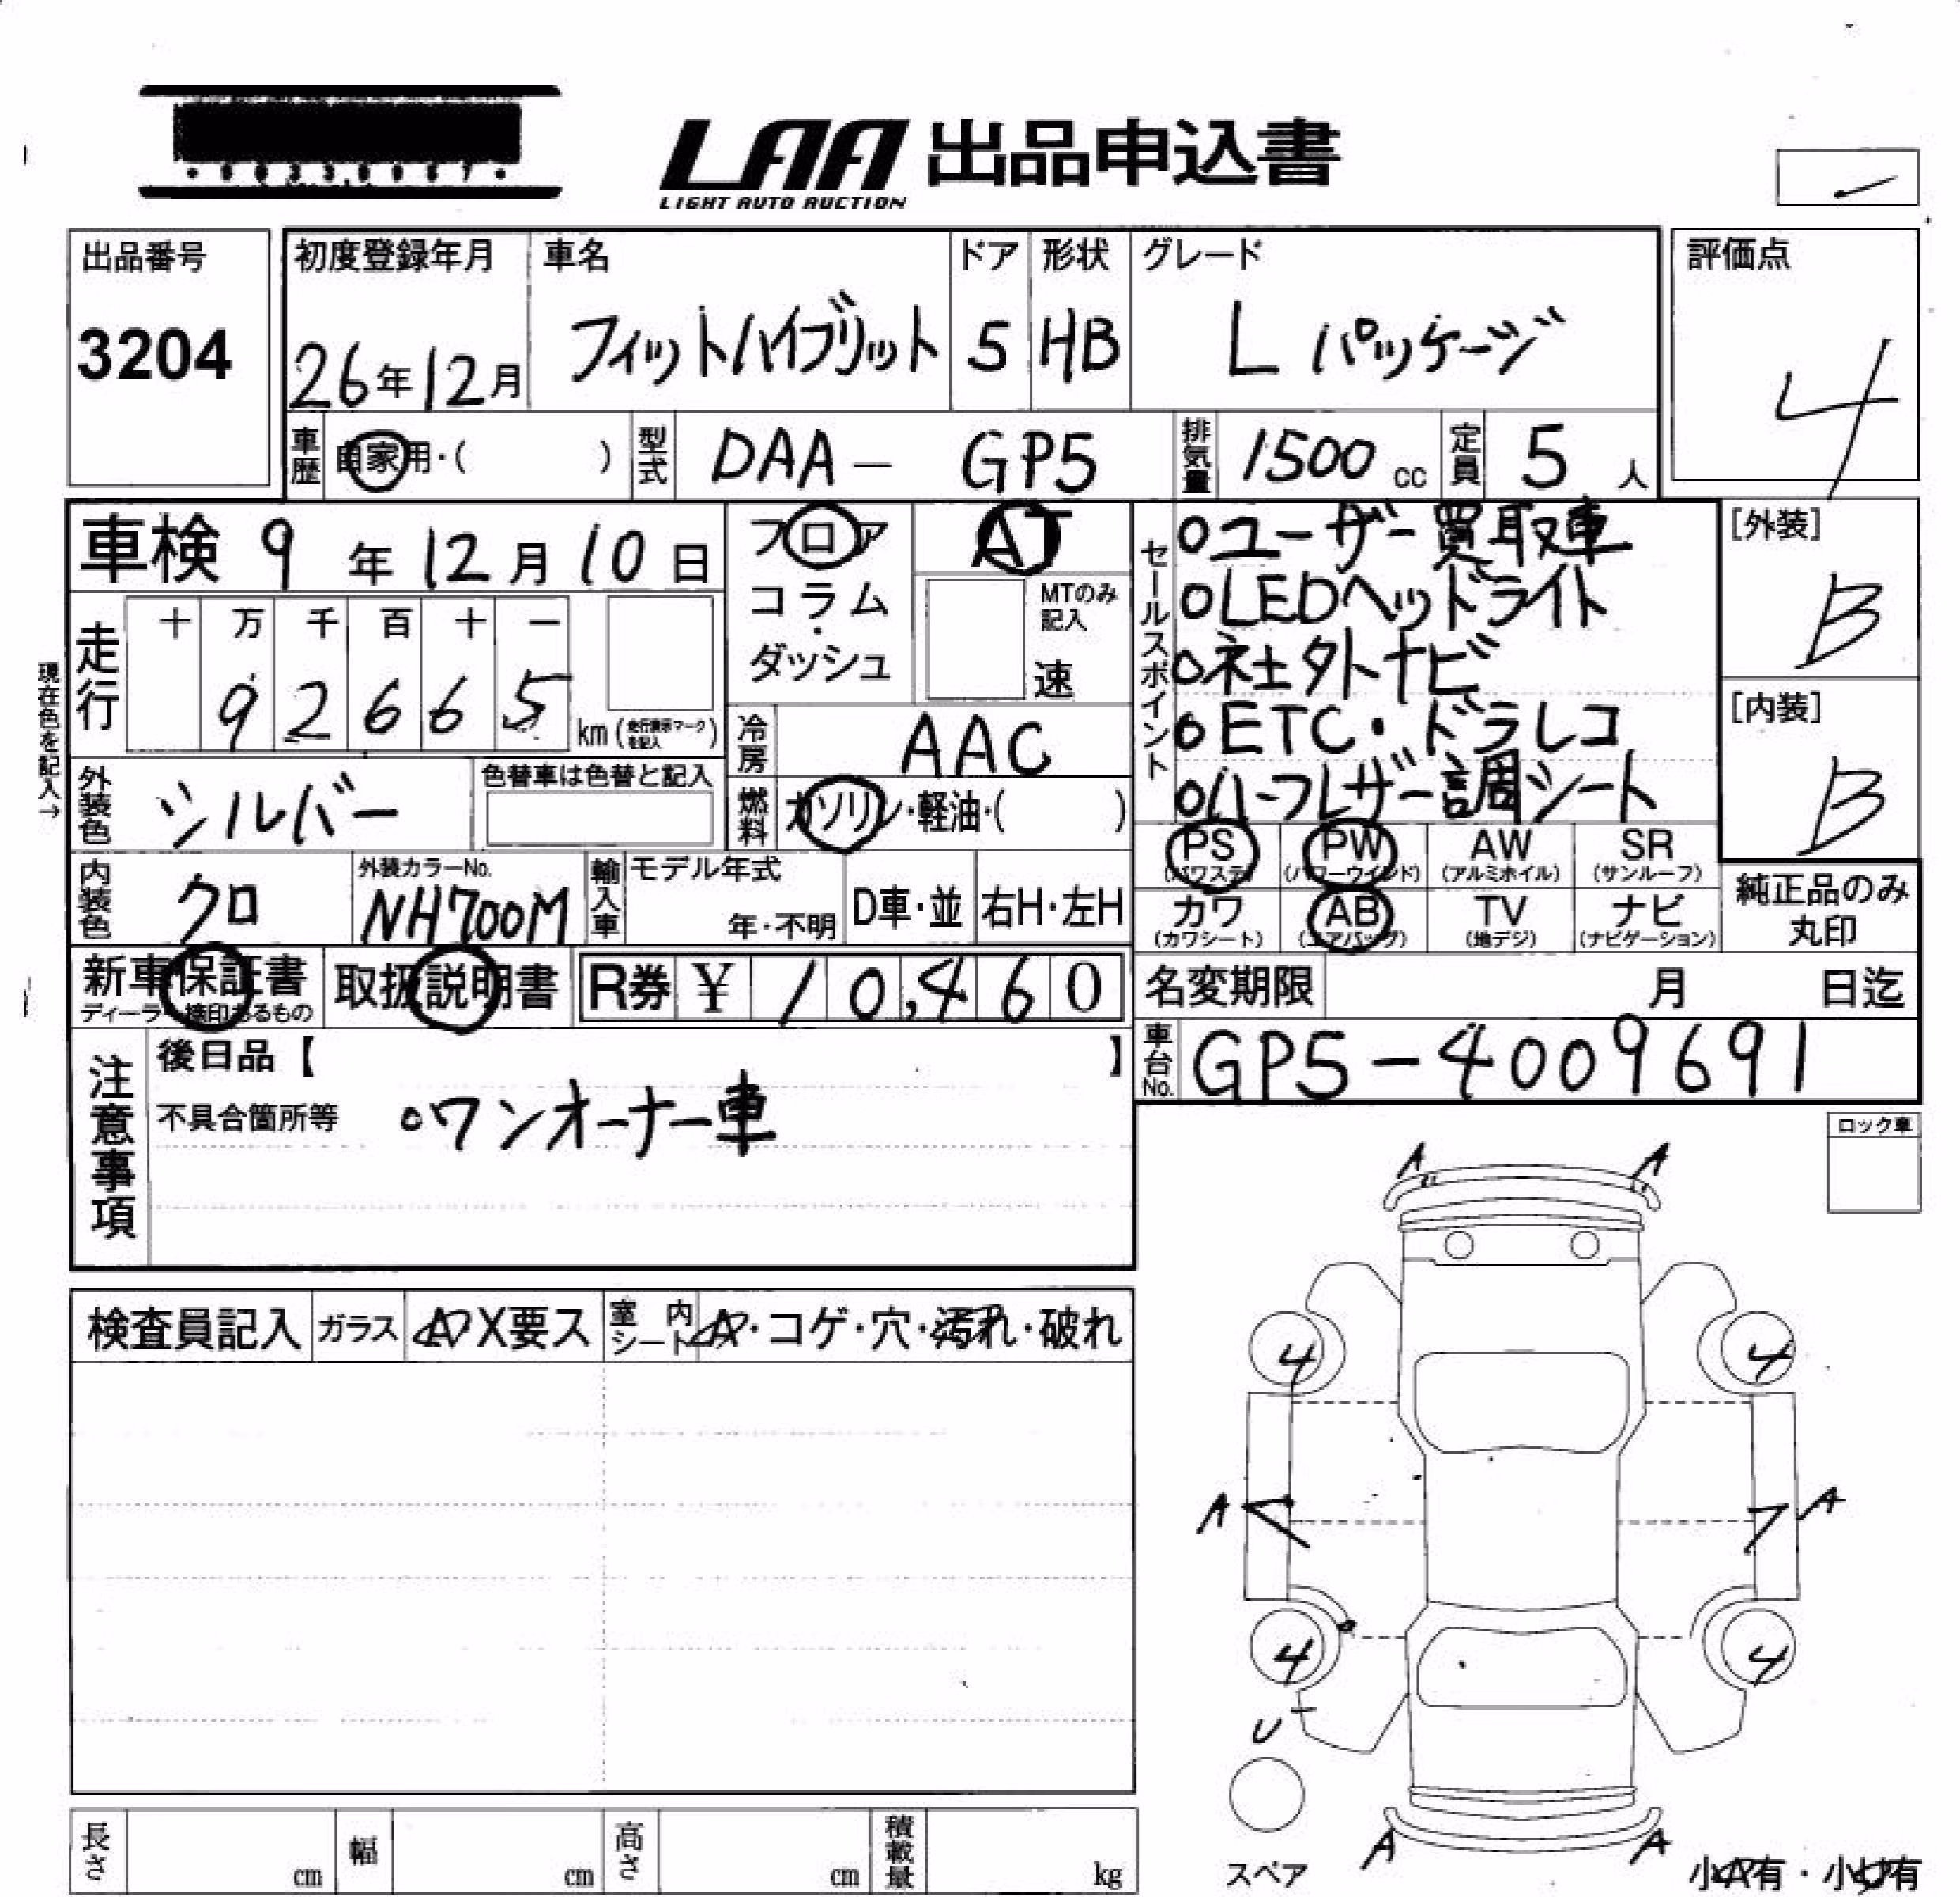 LAA 出品申込書
LIGHT AUTO AUCTION
出品番号
3204
初度登録年月
26年12月
車名
フィットハイブリット
ドア
5
形状
HB
グレード
Lパッケージ
評価点
4
車歴
自家用・( )
型式
DAA－ GP5
排気量
1500 cc
定員
5 人
車検 9年12月10日
フロア
コラム
・
ダッシュ
AT
MTのみ
記入
速
セールスポイント
○ユーザー買取車
○LEDヘッドライト
○社外ナビ
○ETC・ドラレコ
○ハーフレザー調シート
[外装]
B
[内装]
B
現在色を記入→
走行
十 万 千 百 十 一
9 2 6 6 5
km (走行表示マークを記入)
冷房
AAC
外装色
シルバー
色替車は色替と記入
燃料
ガソリン・軽油・( )
PS
(パワステ)
PW
(パワーウインド)
AW
(アルミホイル)
SR
(サンルーフ)
カワ
(カワシート)
AB
(エアバッグ)
TV
(地デジ)
ナビ
(ナビゲーション)
純正品のみ
丸印
内装色
クロ
外装カラーNo.
NH700M
輸入車
モデル年式
年・不明
D車・並
右H・左H
新車保証書
ディーラー捺印あるもの
取扱説明書
R券 ¥ 10,460
名変期限 月 日迄
車台No.
GP5-4009691
注意事項
後日品【 】
不具合箇所等
○ワンオーナー車
ロック車
検査員記入
ガラス
A X要ス
室内シート
A・コゲ・穴・汚れ・破れ
A A
4 4
A A
4 4
U
A A
スペア
小A有・小U有
長さ cm
幅 cm
高さ cm
積載量 kg